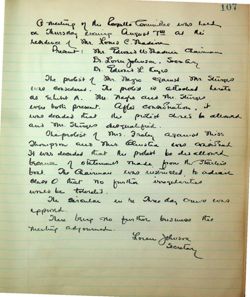 107
A meeting of the Committee was held
on Thursday evening August 7th at the
residence of Mr. Louis C.
Present: Mr. Edward W. Chairman
Dr. Loren Johnson, Secretary
Dr. Edwards L.
The protest of Mr. against Mr.
was considered. The protest is attached hereto
as Exhibit A. The and Mr.
were both present. After consideration, it
was decided that the protest should be allowed
and Mr. disqualified.
The protest of Mrs. against Miss
Thompson and Miss was considered.
It was decided that the protest be disallowed
because of statements made from the
boat. The Chairman was instructed to advise
Class O that no further irregularities
would be tolerated.
The circular in re Three day cruise was
approved.
There being no further business the
meeting adjourned.
Loren Johnson
Secretary